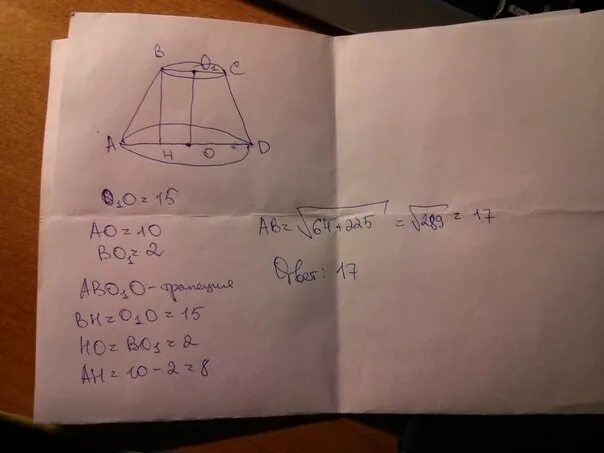 B O₁ C
A H O D
O₁O = 15
AO = 10
BO₁ = 2
ABO₁O - трапеция
BH = O₁O = 15
HO = BO₁ = 2
AH = 10 - 2 = 8
AB = √64 + 225 = √289 = 17
Ответ: 17